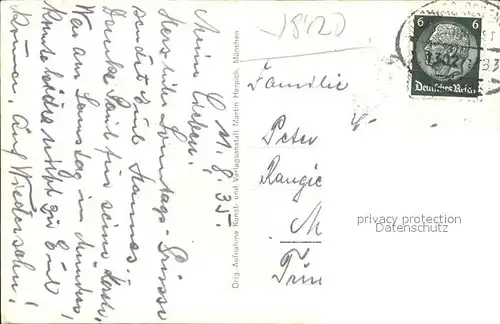 18120
M. 8. 35.
Meine Lieben!
Herzliche Sonntags-Grüsse
sendet Euch Hannes.
Danke Paul für seine Karte.
War am Samstag in München,
konnte leider nicht zu Euch
kommen. Auf Wiedersehn!
Orig. Aufnahme Kunst- und Verlagsanstalt Martin Herpich, München
6
Deutsches Reich
33
Familie
Peter
Rangie
M
Trün
privacy protection
Datenschutz